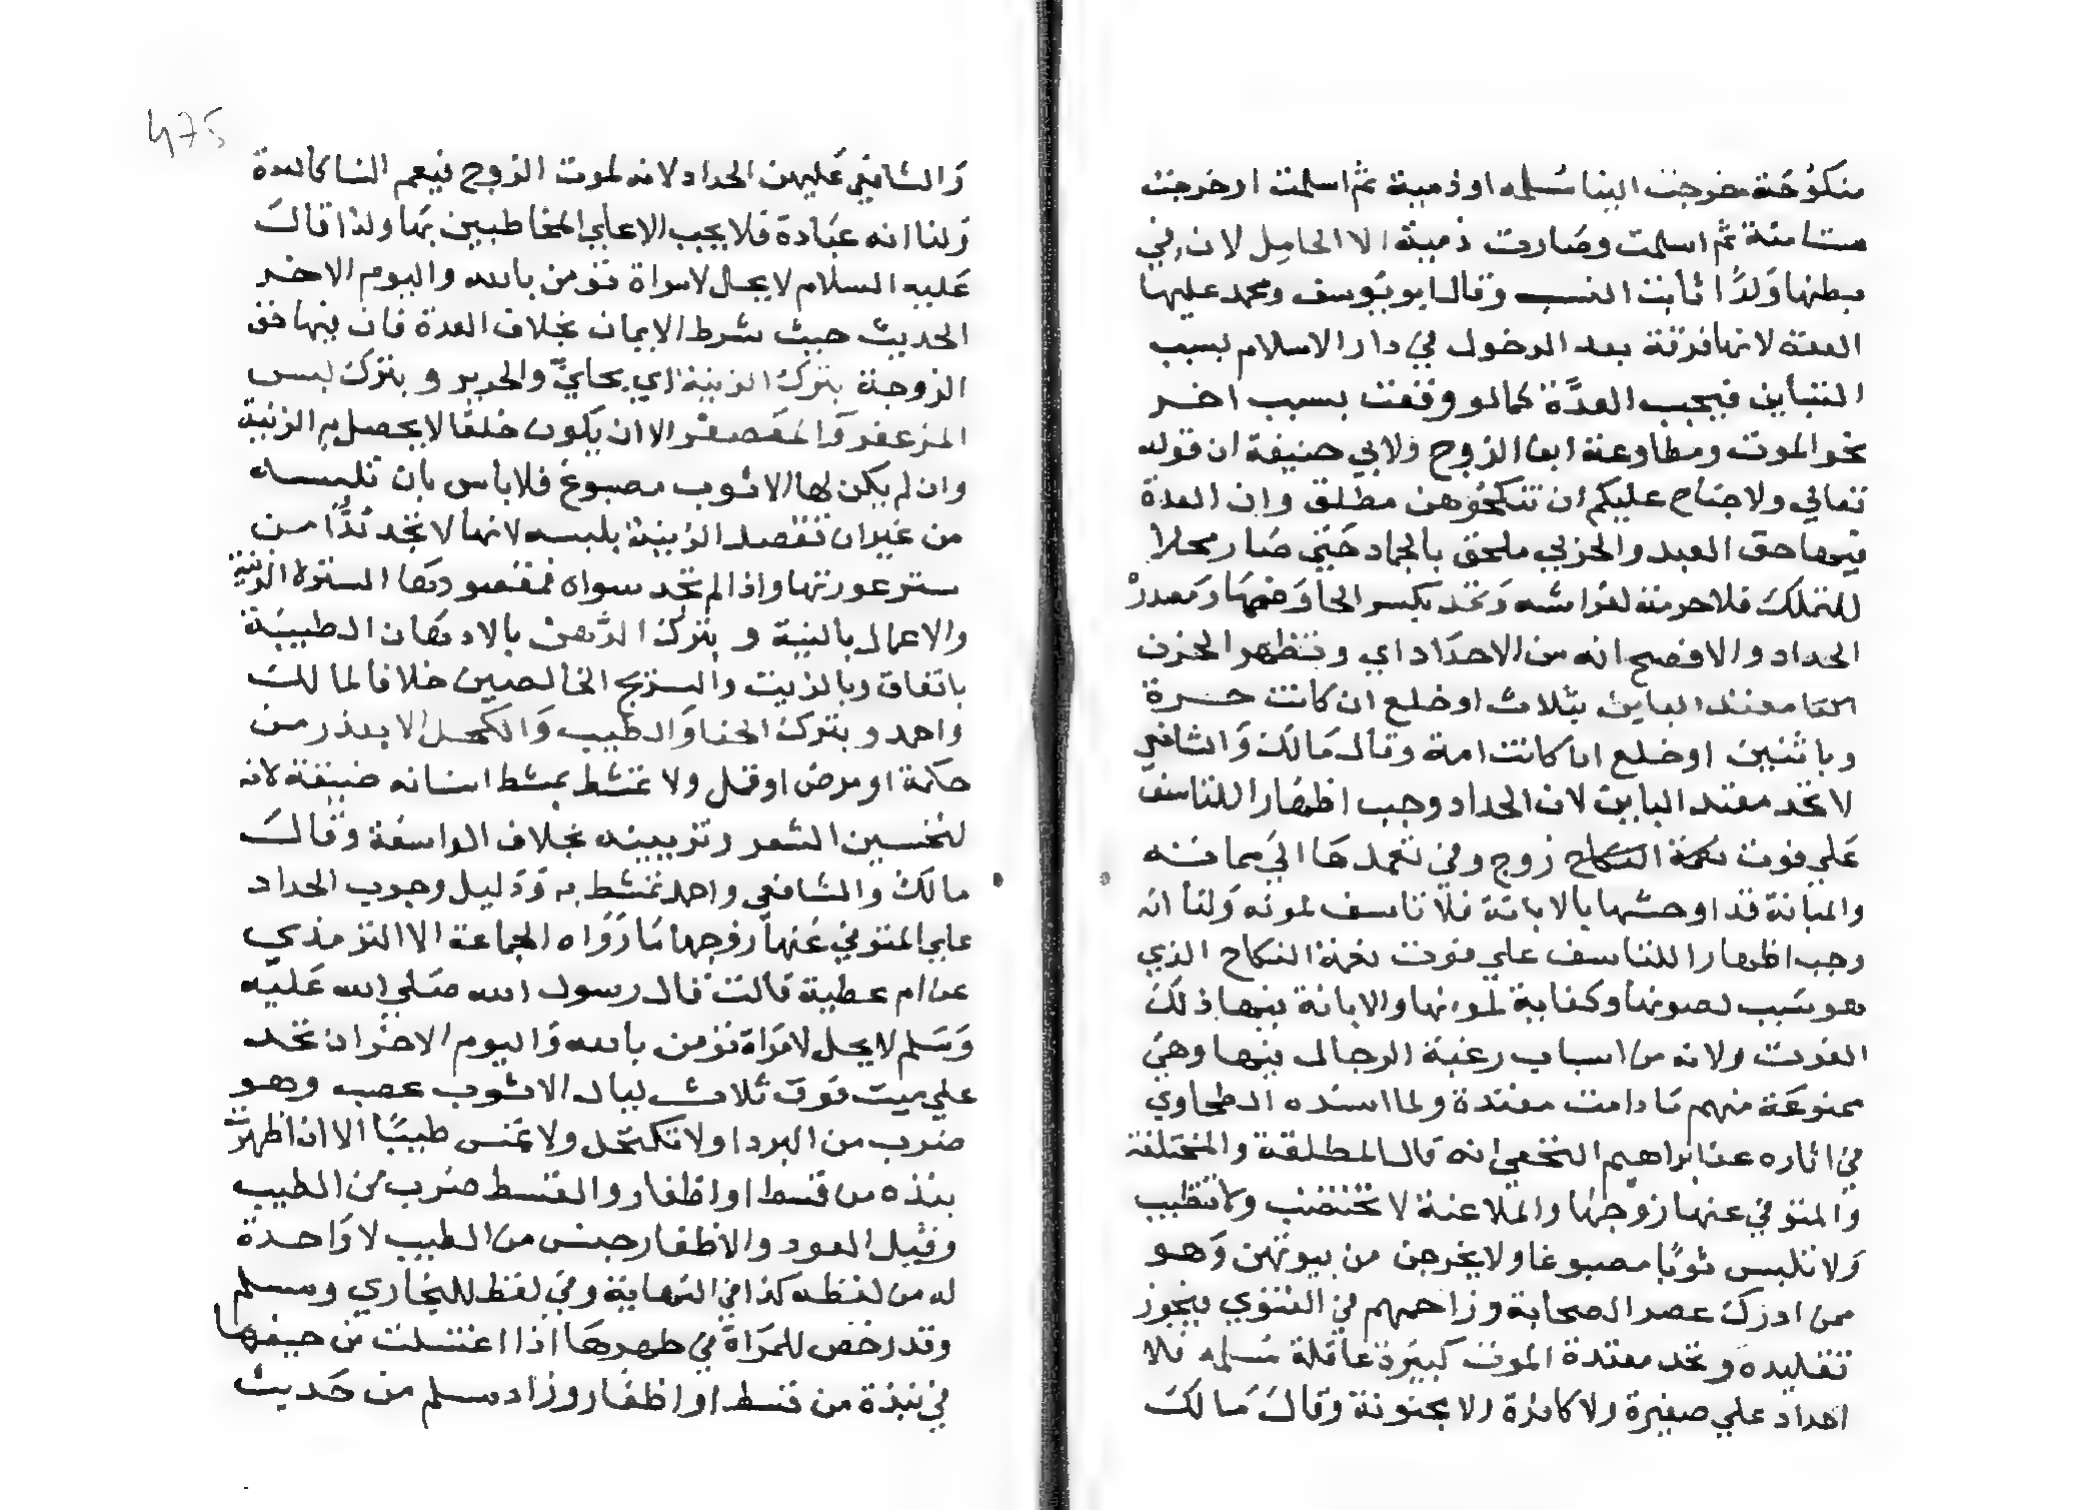 منكوحة خرجت الينا مسلمه او ذمية ثم اسلمت او خرجت
مستامنة ثم اسلمت وصارت ذمية الا الحامل لان في
بطنها ولدا ثابت النسب وقال ابو يوسف ومحمد عليها
العدة لانها فرقة بعد الدخول في دار الاسلام بسبب
التباين فيجب العدة كما لو وقعت بسبب اخر
نحو الموت ومطاوعة ابن الزوج ولابي حنيفة ان قوله
تعالي ولا جناح عليكم ان تنكحوهن مطلق وان العدة
فيها حق العبد والحربي ملحق بالجماد حتي صار محلا
للتملك فلا حرمة لفراشه وتحد بكسر الحا وضمها ومصدره
الحداد والافصح انه من الاحداد اي وتظهر الحزن
معتدة الباين بثلاث او خلع ان كانت حرة
وباثنين او خلع ان كانت امة وقال مالك والشافعي
لا تحد معتدة الباين لان الحداد وجب اظهارا للتاسف
علي فوت نعمة النكاح زوج وفي تعهدها الي مماته
والمبانة قد اوحشها بالابانة فلا تاسف لموته ولنا انه
وجب اظهارا للتاسف علي فوت نعمة النكاح الذي
هو سبب لصونها وكفاية لمونها والابانة فيها ذلك
الفوت ولانه من اسباب رغبة الرجال فيها وهي
ممنوعة منهم ما دامت معتدة ولما اسنده الطحاوي
في اثاره عن ابراهيم النخعي انه قال المطلقة والمختلعة
والمتوفي عنها زوجها والملاعنة لا تختضب ولا تتطيب
ولا تلبس ثوبا مصبوغا ولا يخرجن من بيوتهن وهو
ممن ادرك عصر الصحابة وزاحمهم في الفتوي فيجوز
تقليده وتحد معتدة الموت كبيرة عاقلة مسلمه فلا
احداد علي صغيرة ولا كافرة ولا مجنونة وقال مالك
475
والشافعي عليهن الحداد لانه لموت الزوج فيعم النسا كالعدة
ولنا انه عبادة فلا يجب الا علي المخاطبين بها ولذا قال
عليه السلام لا يحل لامراة تومن بالله واليوم الاخر
الحديث حيث شرط الايمان بخلاف العدة فان فيها حق
الزوجة بترك الزينة اي بحلي والحرير وبترك لبس
المزعفر والمعصفر الا ان يكون خلقا لا يحصل به الزينة
وان لم يكن لها الا ثوب مصبوغ فلا باس بان تلبسه
من غير ان تقصد الزينة بلبسه لانها لا تجد بدا من
ستر عورتها واذا لم تجد سواه فمقصودها السترة لا الزينة
والاعمال بالنية وبترك الدهن بالادهان الطيبة
باتفاق وبالزيت والسيرج الخالصين خلافا لمالك
واحمد وبترك الحنا والطيب والكحل الا بعذر من
حكة او مرض او قمل ولا تمشط بمشط اسنانه ضيقة لانه
لتحسين الشعر وتزيينه بخلاف الواسعة وقال
مالك والشافعي واحمد تمتشط به ودليل وجوب الحداد
علي المتوفي عنها زوجها ما رواه الجماعة الا الترمذي
عن ام عطية قالت قال رسول الله صلي الله عليه
وسلم لا يحل لامراة تومن بالله واليوم الاخر ان تحد
علي ميت فوق ثلاث ليال الا ثوب عصب وهو
ضرب من البرد ولا تكتحل ولا تمس طيبا الا ان اطهرت
بنبذه من قسط او اظفار والقسط ضرب من الطيب
وقيل العود والاظفار جنس من الطيب لا واحدة
له من لفظه كذا في النهاية وفي لفظ للبخاري ومسلم
وقد رخص للمراة في طهرها اذا اغتسلت من حيضها
في نبذة من قسط او اظفار وزاد مسلم من حديث